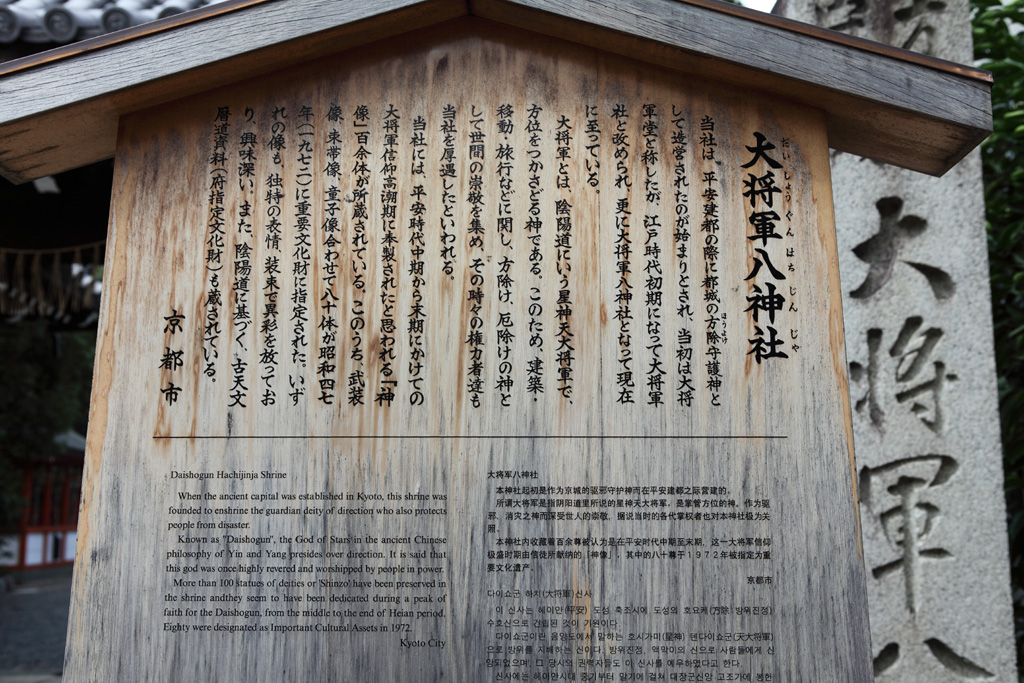 大将軍八神社
だいしょうぐんはちじんじゃ
当社は、平安建都の際に都城の方除守護神と
ほうよけ
して造営されたのが始まりとされ、当初は大将
軍堂と称したが、江戸時代初期になって大将軍
社と改められ、更に大将軍八神社となって現在
に至っている。
大将軍とは、陰陽道にいう星神天大将軍で、
方位をつかさどる神である。このため、建築・
移動・旅行などに関し、方除け、厄除けの神と
して世間の崇敬を集め、その時々の権力者達も
当社を厚遇したといわれる。
当社には、平安時代中期から末期にかけての
大将軍信仰高潮期に奉製されたと思われる「神
像」百余体が所蔵されている。このうち、武装
像、束帯像、童子像合わせて八十体が昭和四七
年(一九七二)に重要文化財に指定された。いず
れの像も、独特の表情、装束で異彩を放ってお
り、興味深い。また、陰陽道に基づく、古天文
暦道資料(府指定文化財)も蔵されている。
京都市
Daishogun Hachijinja Shrine
When the ancient capital was established in Kyoto, this shrine was
founded to enshrine the guardian deity of direction who also protects
people from disaster.
Known as "Daishogun", the God of Stars in the ancient Chinese
philosophy of Yin and Yang presides over direction. It is said that
this god was once highly revered and worshipped by people in power.
More than 100 statues of deities or 'Shinzo' have been preserved in
the shrine andthey seem to have been dedicated during a peak of
faith for the Daishogun, from the middle to the end of Heian period.
Eighty were designated as Important Cultural Assets in 1972.
Kyoto City
大将军八神社
本神社起初是作为京城的驱邪守护神而在平安建都之际营建的。
所谓大将军是指阴阳道里所说的星神天大将军，是掌管方位的神。作为驱
邪、消灾之神而深受世人的崇敬，据说当时的各代掌权者也对本神社极为关
照。
本神社内收藏着百余尊被认为是在平安时代中期至末期，这一大将军信仰
极盛时期由信徒所献纳的「神像」，其中的八十尊于１９７２年被指定为重
要文化遗产。
京都市
다이쇼군 하치(大将軍)신사
이 신사는 헤이안(平安) 도성 축조시에 도성의 호요케(方除: 방위진정)
수호신으로 건립된 것이 기원이다.
다이쇼군이란 음양도에서 말하는 호시가미(星神) 텐다이쇼군(天大将軍)
으로 방위를 지배하는 신이다. 방위진정, 액막이의 신으로 사람들에게 신
앙되었으며, 그 당시의 권력자들도 이 신사를 예우하였다고 한다.
신사에는 헤이안시대 중기부터 말기에 걸쳐 대장군신앙 고조기에 봉헌
大将軍八